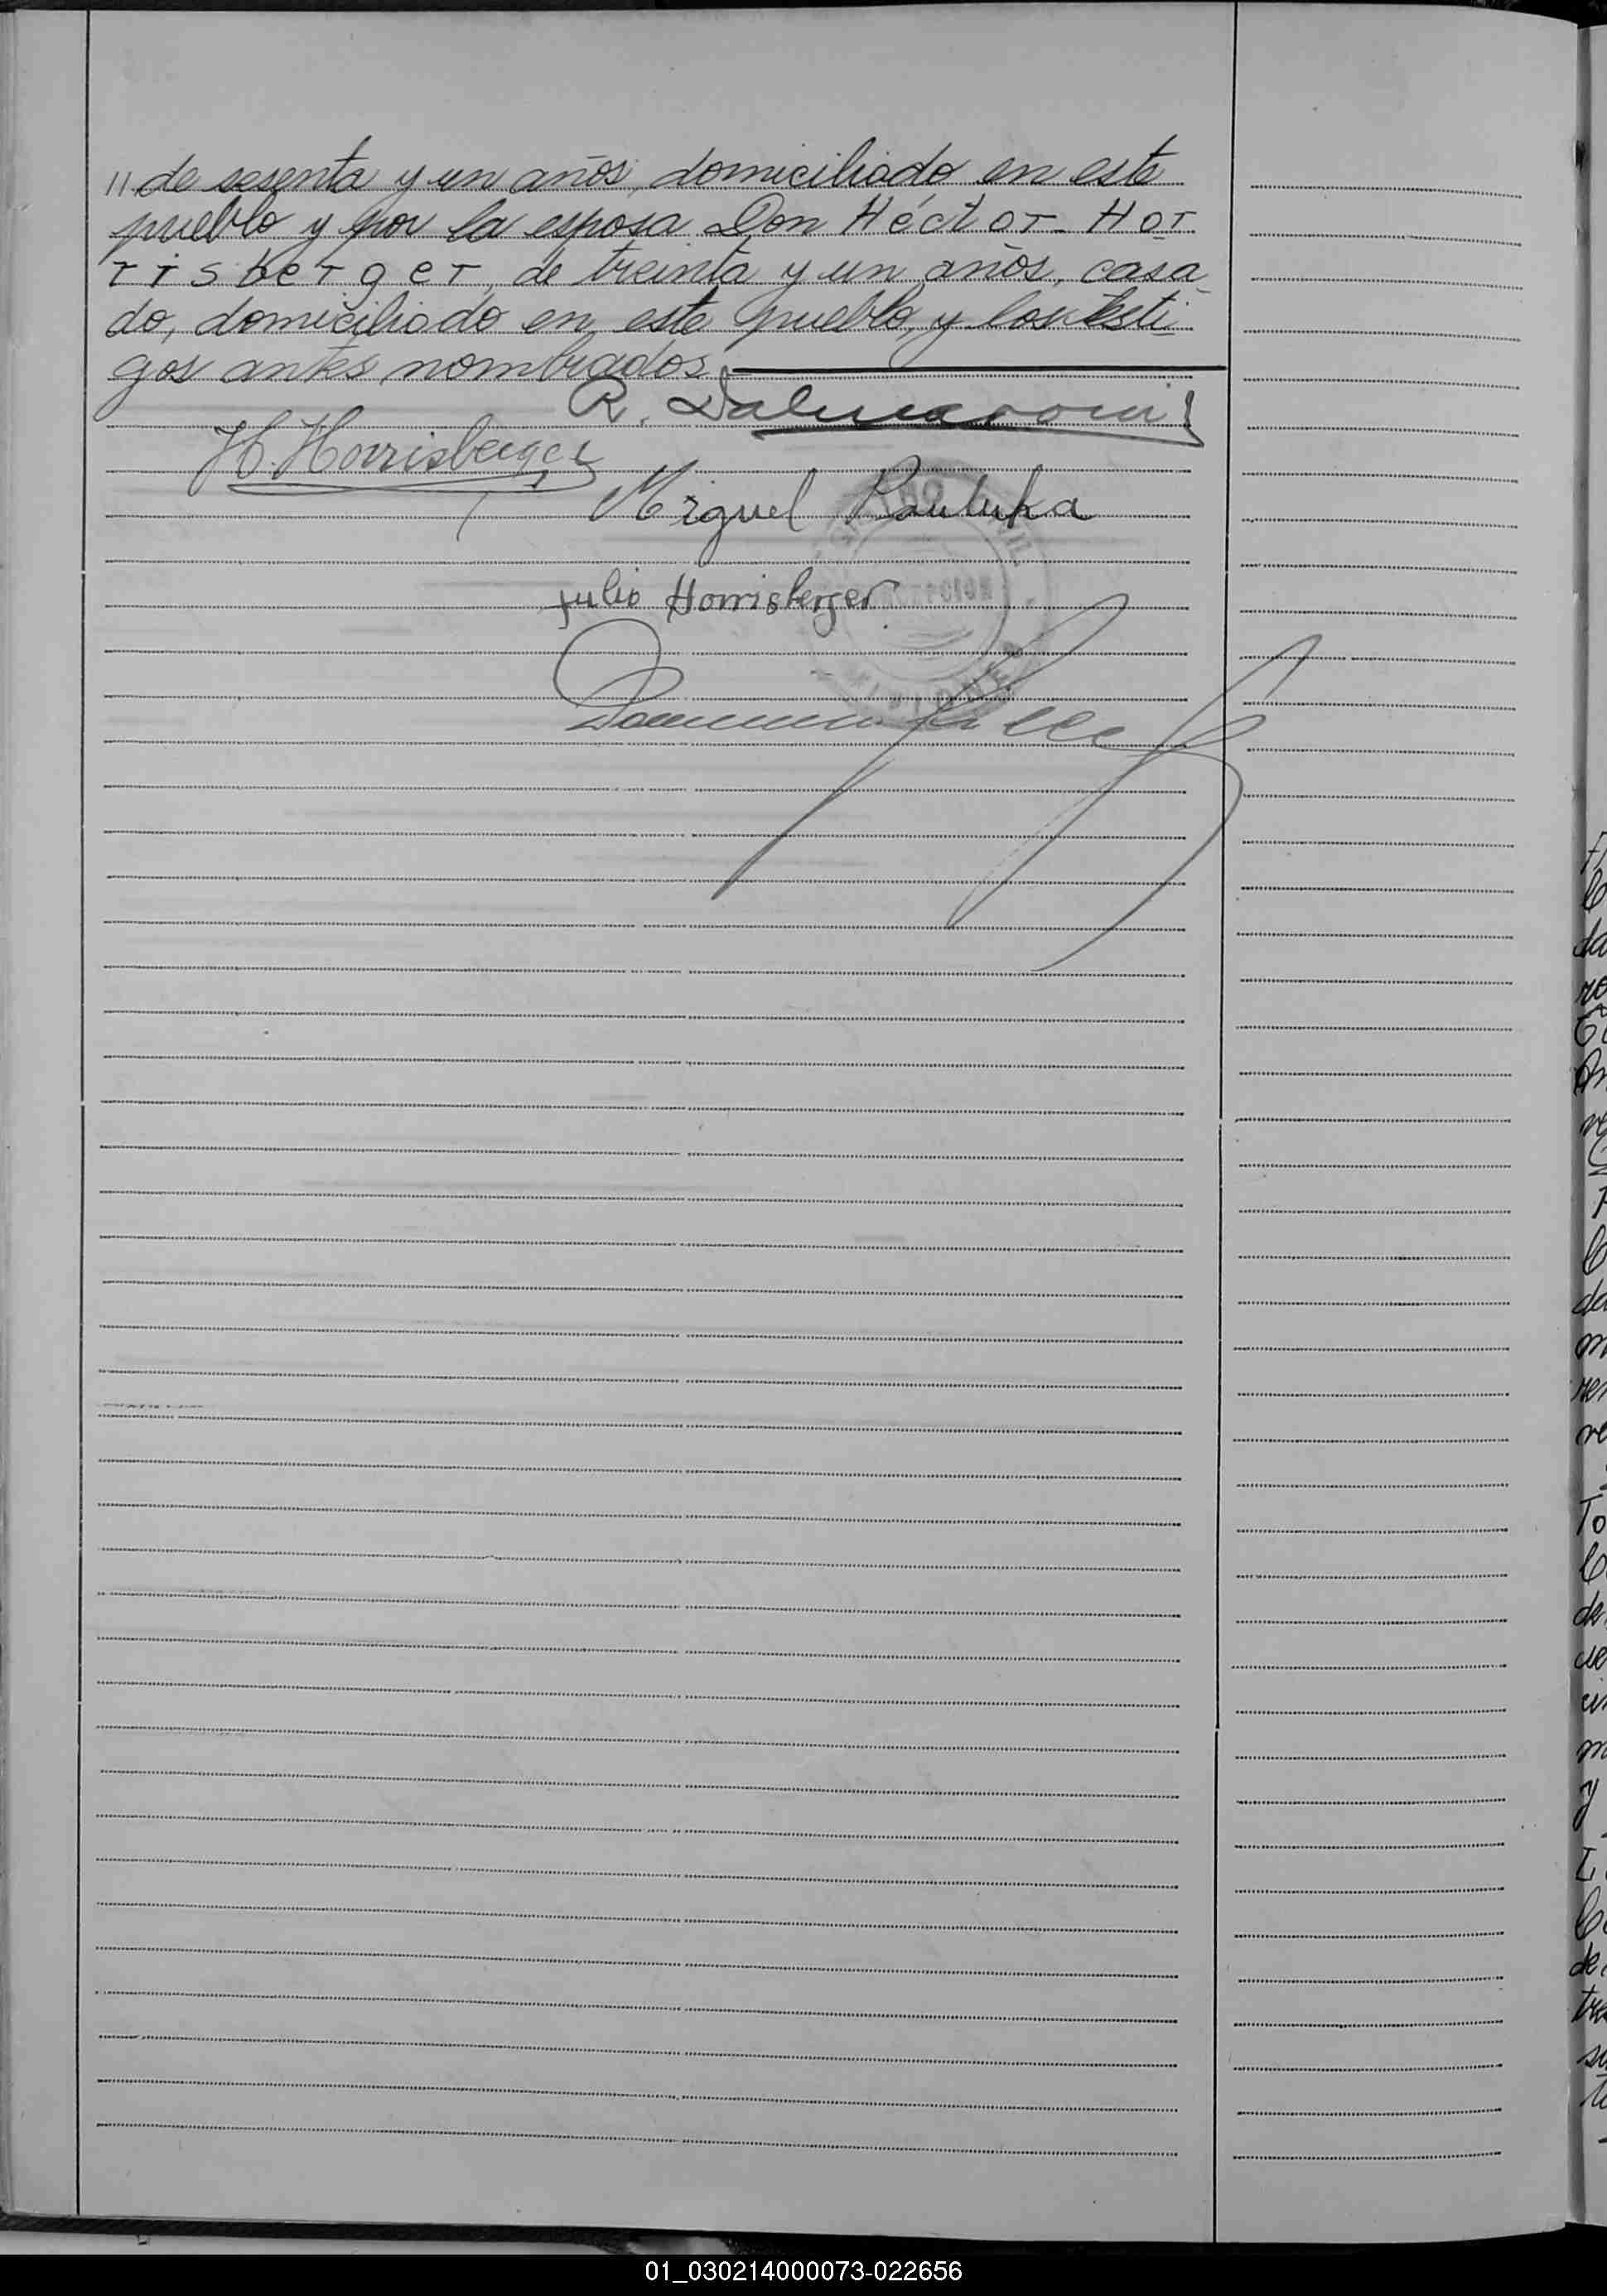 // de sesenta y un años, domiciliado en este
pueblo y por la esposa Don Héctor Hor_
risberger, de treinta y un años, casa_
do, domiciliado en este pueblo, y los testi_
gos antes nombrados.
R. Dalmaroni
H. Horrisberger
Miguel Pauluka
Julio Horrisberger
01_030214000073-022656